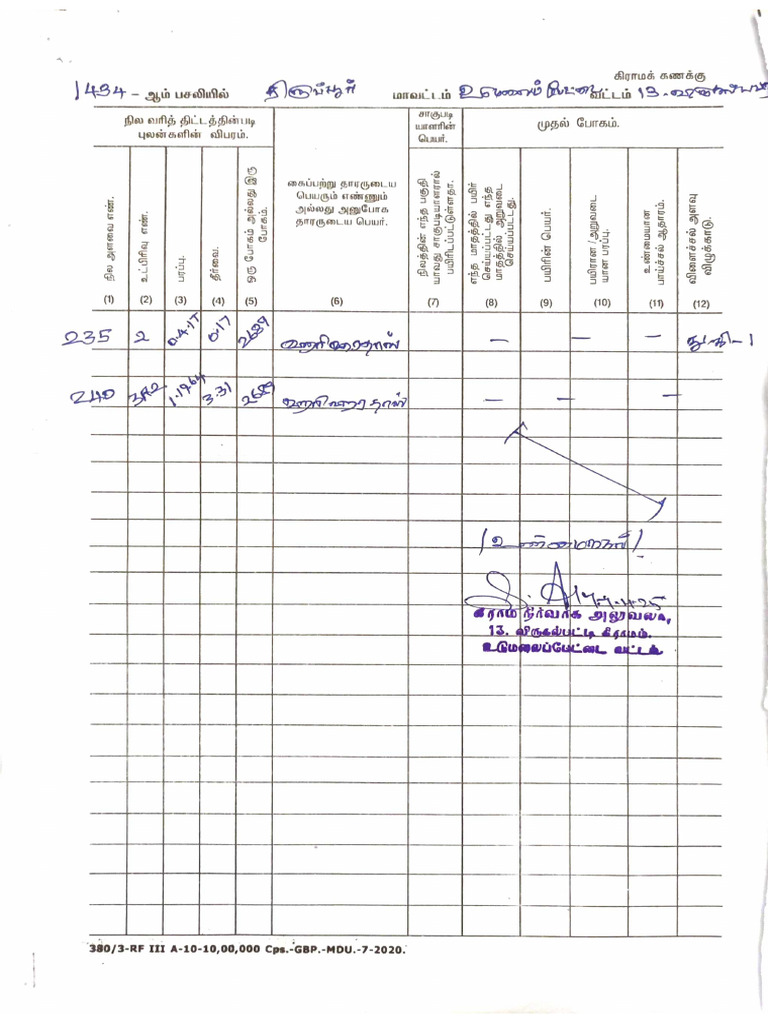 கிராமக் கணக்கு
1434 - ஆம் பசலியில் திருப்பூர் மாவட்டம் வட்டம் 13.
நில வரித் திட்டத்தின்படி புலன்களின் விபரம்.
சாகுபடி யாளரின் பெயர்.
முதல் போகம்.
நில அளவை எண்.
உட்பிரிவு எண்.
பரப்பு.
தீர்வை.
ஒரு போகம் அல்லது இரு போகம்.
கைப்பற்று தாரருடைய பெயரும் எண்ணும் அல்லது அனுபோக தாரருடைய பெயர்.
நிலத்தின் எந்த பகுதி யாவது சாகுபடியாளரால் பயிரிடப்பட்டுள்ளதா.
எந்த மாதத்தில் பயிர் செய்யப்பட்டது எந்த மாதத்தில் அறுவடை செய்யப்பட்டது.
பயிரின் பெயர்.
பயிரான /அறுவடை யான பரப்பு.
உண்மையான பாய்ச்சல் ஆதாரம்.
விளைச்சல் அளவு விழுக்காடு.
(1) (2) (3) (4) (5) (6) (7) (8) (9) (10) (11) (12)
235 2 0.4.17 0.17 2689 – – –
240 3A2 1.19.64 3.31 2689 – – –
கிராம நிர்வாக அலுவலர்,
13. விருகல்பட்டி கிராமம்.
உடுமலைப்பேட்டை வட்டம்
380/3-RF III A-10-10,00,000 Cps.-GBP.-MDU.-7-2020.